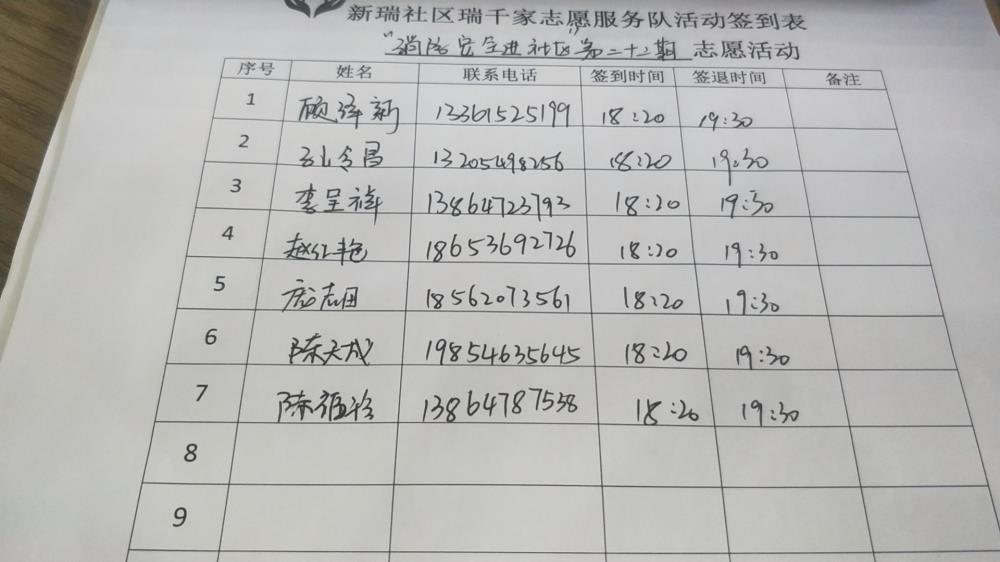 新瑞社区瑞千家志愿服务队活动签到表
"消防安全进社区"第二十二期 志愿活动
序号 姓名 联系电话 签到时间 签退时间 备注
1 顾泽新 13361525199 18:20 19:30
2 孔令昌 13205498256 18:20 19:30
3 李呈祥 13864723793 18:20 19:30
4 赵红艳 18653692726 18:20 19:30
5 庞志团 18562073561 18:20 19:30
6 陈天成 19854635645 18:20 19:30
7 13864787538 18:20 19:30
8
9